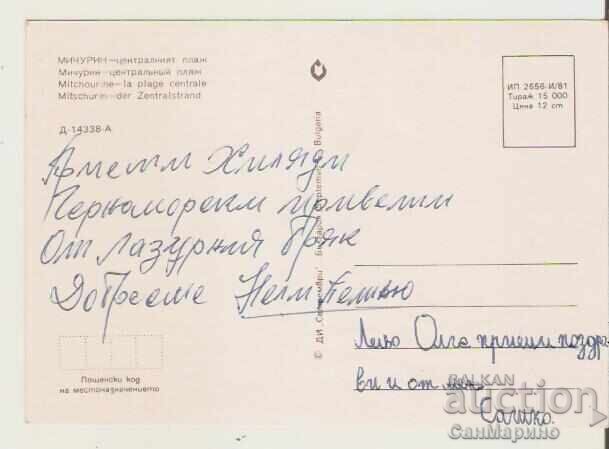 МИЧУРИН—централният плаж
Мичурин—центральный пляж
Mitchourine—la plage centrale
Mitschurin—der Zentralstrand
Д-14338-А
ИП 2656-И/81
Тираж 15 000
Цена 12 cm
Приеми Хиляди
Черноморски привети
От Лазурния Бряк
Добре сме
© ДИ „Септември“ Bulgaria
Лельо Олга приеми поздра-
ви и от мен
Сашко.
Пощенски код
на местоназначението
BALKAN
auction
СанМарино